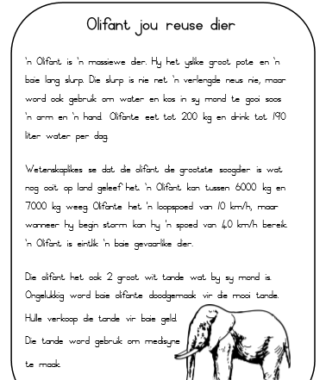 Olifant jou reuse dier
'n Olifant is 'n massiewe dier. Hy het yslike groot pote en 'n
baie lang slurp. Die slurp is nie net 'n verlengde neus nie, maar
word ook gebruik om water en kos in sy mond te gooi soos
'n arm en 'n hand. Olifante eet tot 200 kg en drink tot 190
liter water per dag.
Wetenskaplikes se dat die olifant die grootste soogdier is wat
nog ooit op land geleef het. 'n Olifant kan tussen 6000 kg en
7000 kg weeg. Olifante het 'n loopspoed van 10 km/h, maar
wanneer hy begin storm kan hy 'n spoed van 40 km/h bereik.
'n Olifant is eintlik 'n baie gevaarlike dier.
Die olifant het ook 2 groot wit tande wat by sy mond is.
Ongelukkig word baie olifante doodgemaak vir die mooi tande.
Hulle verkoop die tande vir baie geld.
Die tande word gebruik om medisyne
te maak.